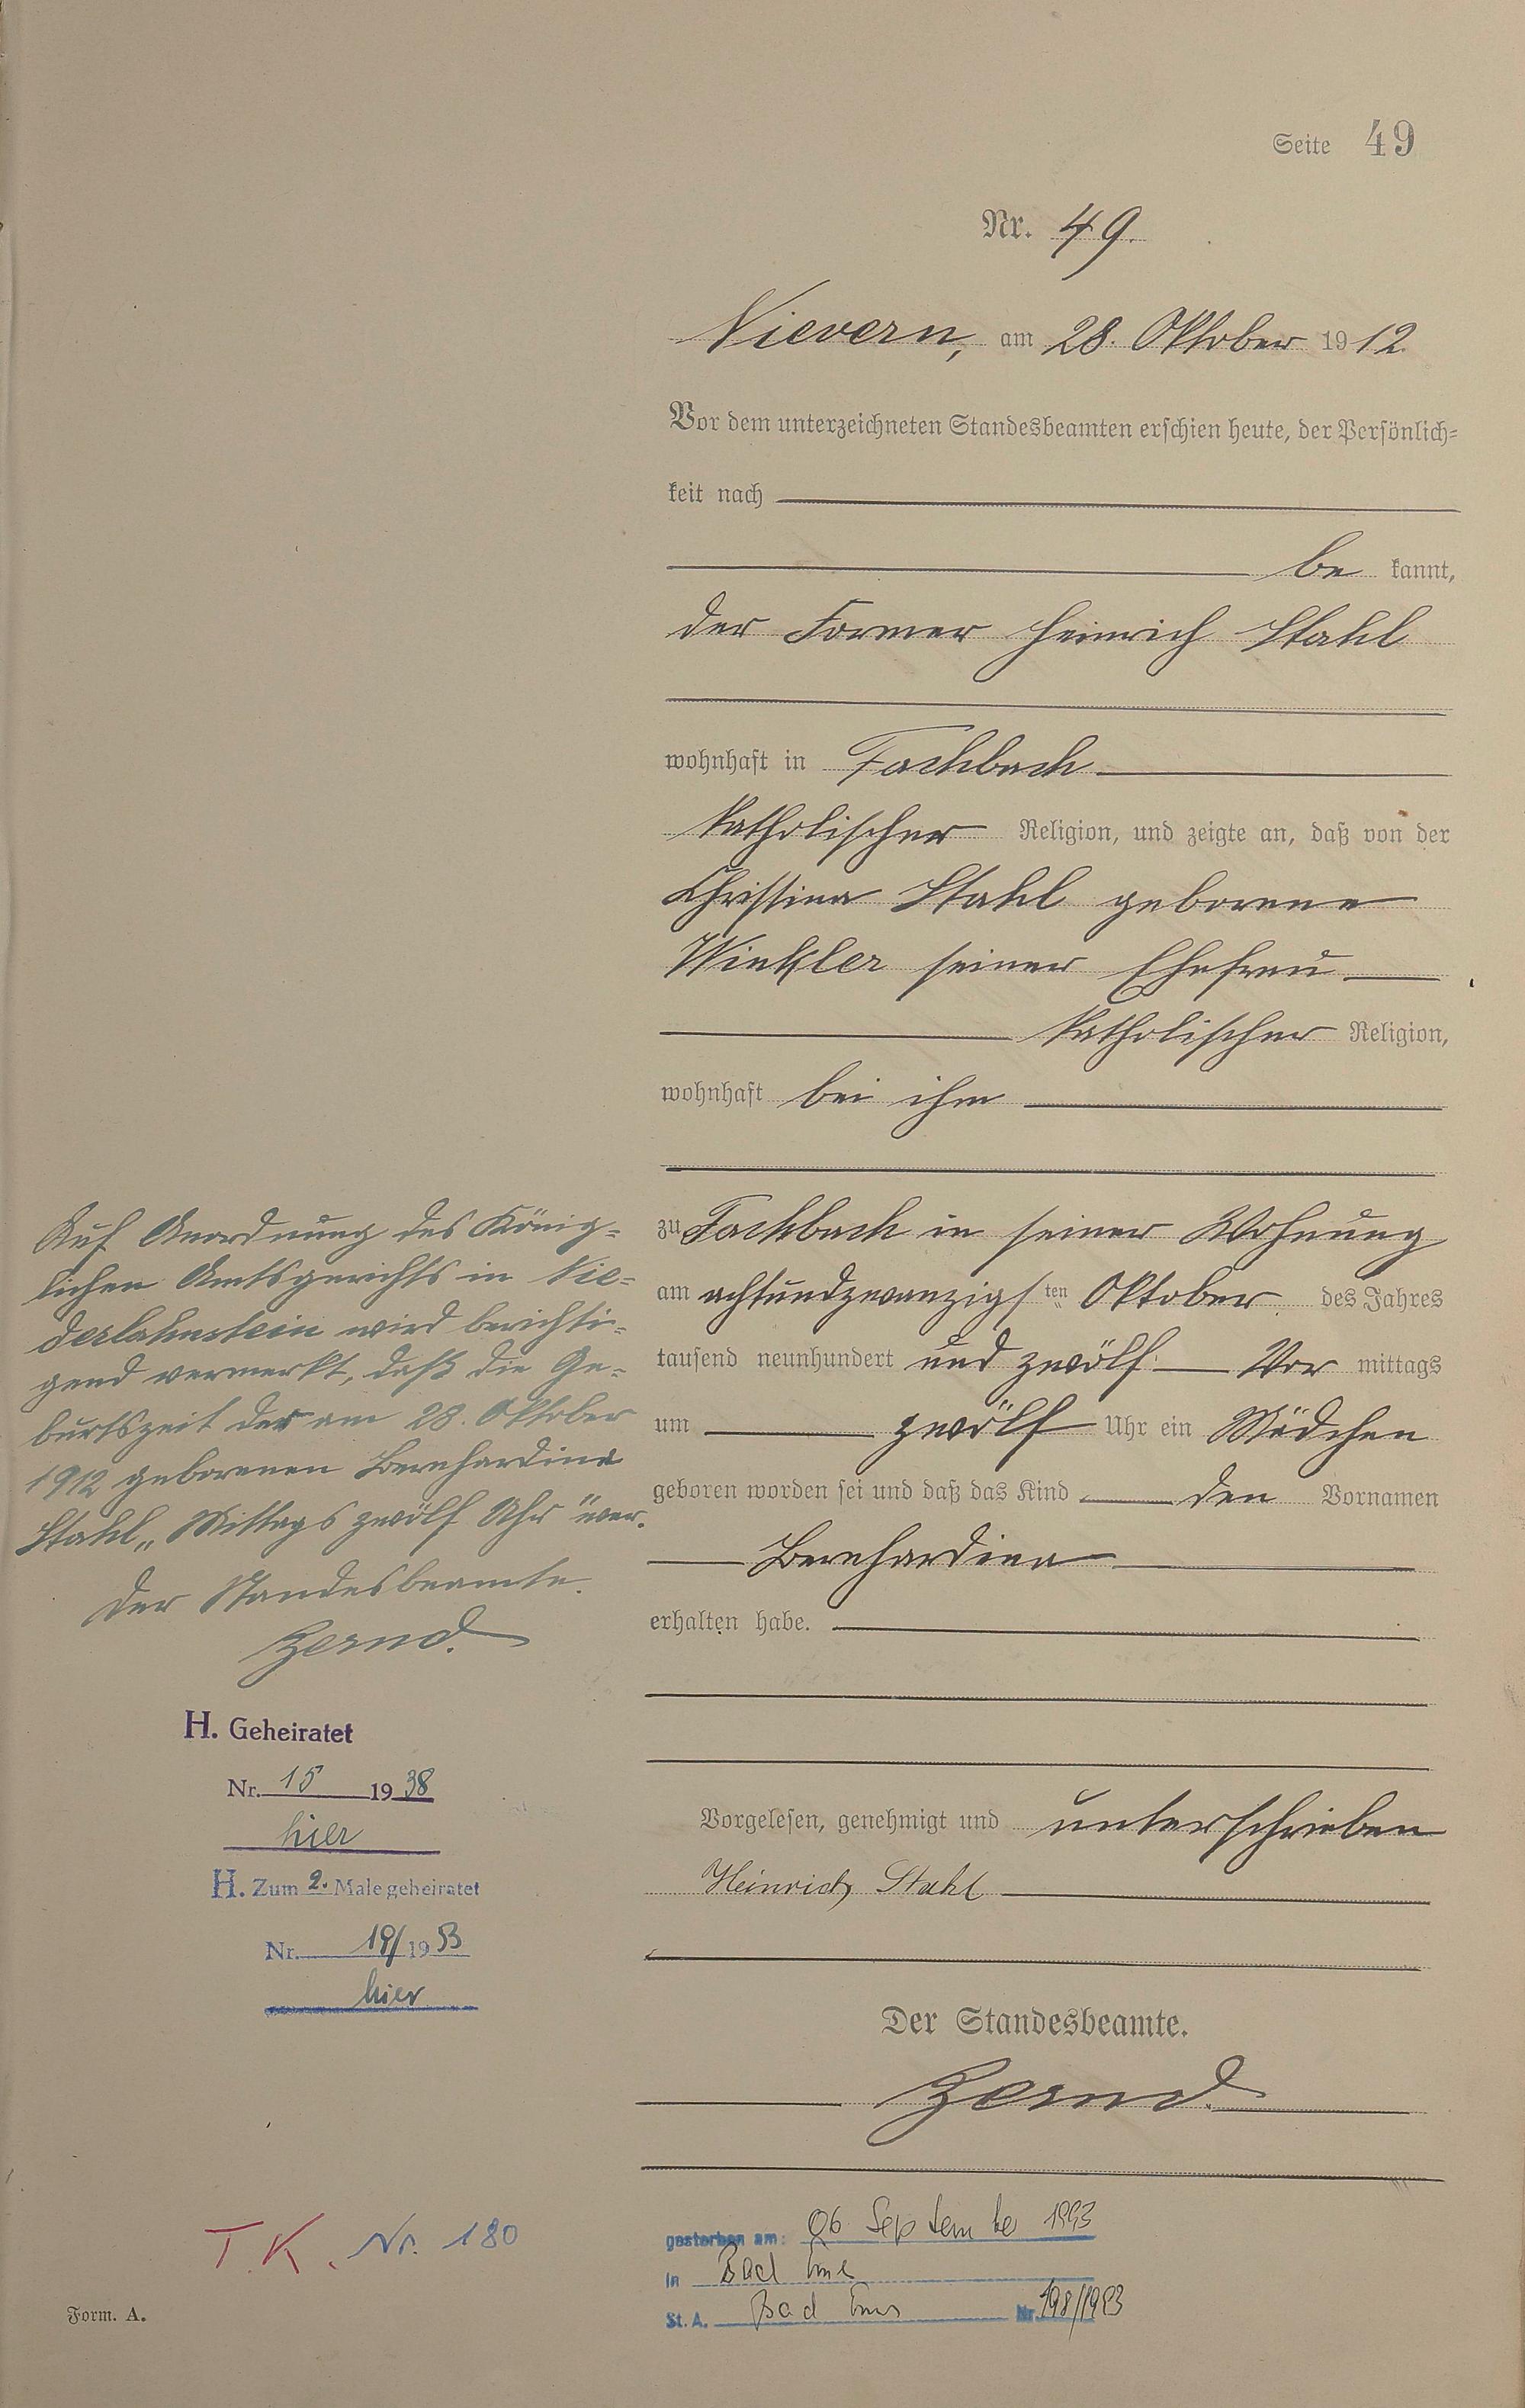 Seite 49
Nr. 49.
Nievern, am 28. Oktober 1912
Vor dem unterzeichneten Standesbeamten erschien heute, der Persönlich=
keit nach
be kannt,
der Former Heinrich Stahl
wohnhaft in Fachbach
katholischer Religion, und zeigte an, daß von der
Christina Stahl geborene
Winkler seiner Ehefrau
katholischer Religion,
wohnhaft bei ihm
zu Fachbach in seiner Wohnung
am achtundzwanzigsten Oktober des Jahres
tausend neunhundert und zwölf Vor mittags
um zwölf Uhr ein Mädchen
geboren worden sei und daß das Kind den Vornamen
Bernhardina
erhalten habe.
Vorgelesen, genehmigt und unterschrieben
Heinrich Stahl
Der Standesbeamte.
Zernd.
Auf Anordnung des König=
lichen Amtsgerichts in Nie=
derlahnstein wird berichti=
gend vermerkt, daß die Ge=
burtszeit der am 28. Oktober
1912 geborenen Bernhardina
Stahl „Mittags zwölf Uhr" war.
Der Standesbeamte.
Zernd.
H. Geheiratet
Nr. 15 1938
hier
H. Zum 2. Male geheiratet
Nr. 19/1953
hier
T.K. Nr. 180
gestorben am: 06. September 1993
in Bad Ems
St. A. Bad Ems Nr. 198/1993
Form. A.